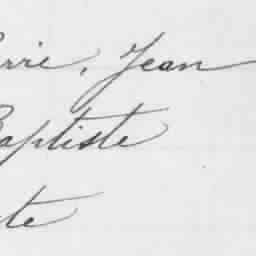 erre, Jean
Baptiste
te